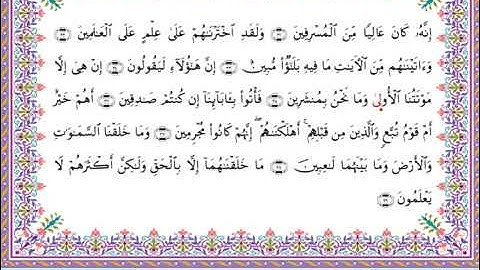 إِنَّهُۥ كَانَ عَالِيًا مِّنَ ٱلْمُسْرِفِينَ ۝٣١ وَلَقَدِ ٱخْتَرْنَـٰهُمْ عَلَىٰ عِلْمٍ عَلَى ٱلْعَـٰلَمِينَ ۝٣٢
وَءَاتَيْنَـٰهُم مِّنَ ٱلْـَٔايَـٰتِ مَا فِيهِ بَلَـٰٓؤٌا۟ مُّبِينٌ ۝٣٣ إِنَّ هَـٰٓؤُلَآءِ لَيَقُولُونَ ۝٣٤ إِنْ هِىَ إِلَّا
مَوْتَتُنَا ٱلْأُولَىٰ وَمَا نَحْنُ بِمُنشَرِينَ ۝٣٥ فَأْتُوا۟ بِـَٔابَآئِنَآ إِن كُنتُمْ صَـٰدِقِينَ ۝٣٦ أَهُمْ خَيْرٌ
أَمْ قَوْمُ تُبَّعٍ وَٱلَّذِينَ مِن قَبْلِهِمْ ۚ أَهْلَكْنَـٰهُمْ ۖ إِنَّهُمْ كَانُوا۟ مُجْرِمِينَ ۝٣٧ وَمَا خَلَقْنَا ٱلسَّمَـٰوَٰتِ
وَٱلْأَرْضَ وَمَا بَيْنَهُمَا لَـٰعِبِينَ ۝٣٨ مَا خَلَقْنَـٰهُمَآ إِلَّا بِٱلْحَقِّ وَلَـٰكِنَّ أَكْثَرَهُمْ لَا
يَعْلَمُونَ ۝٣٩